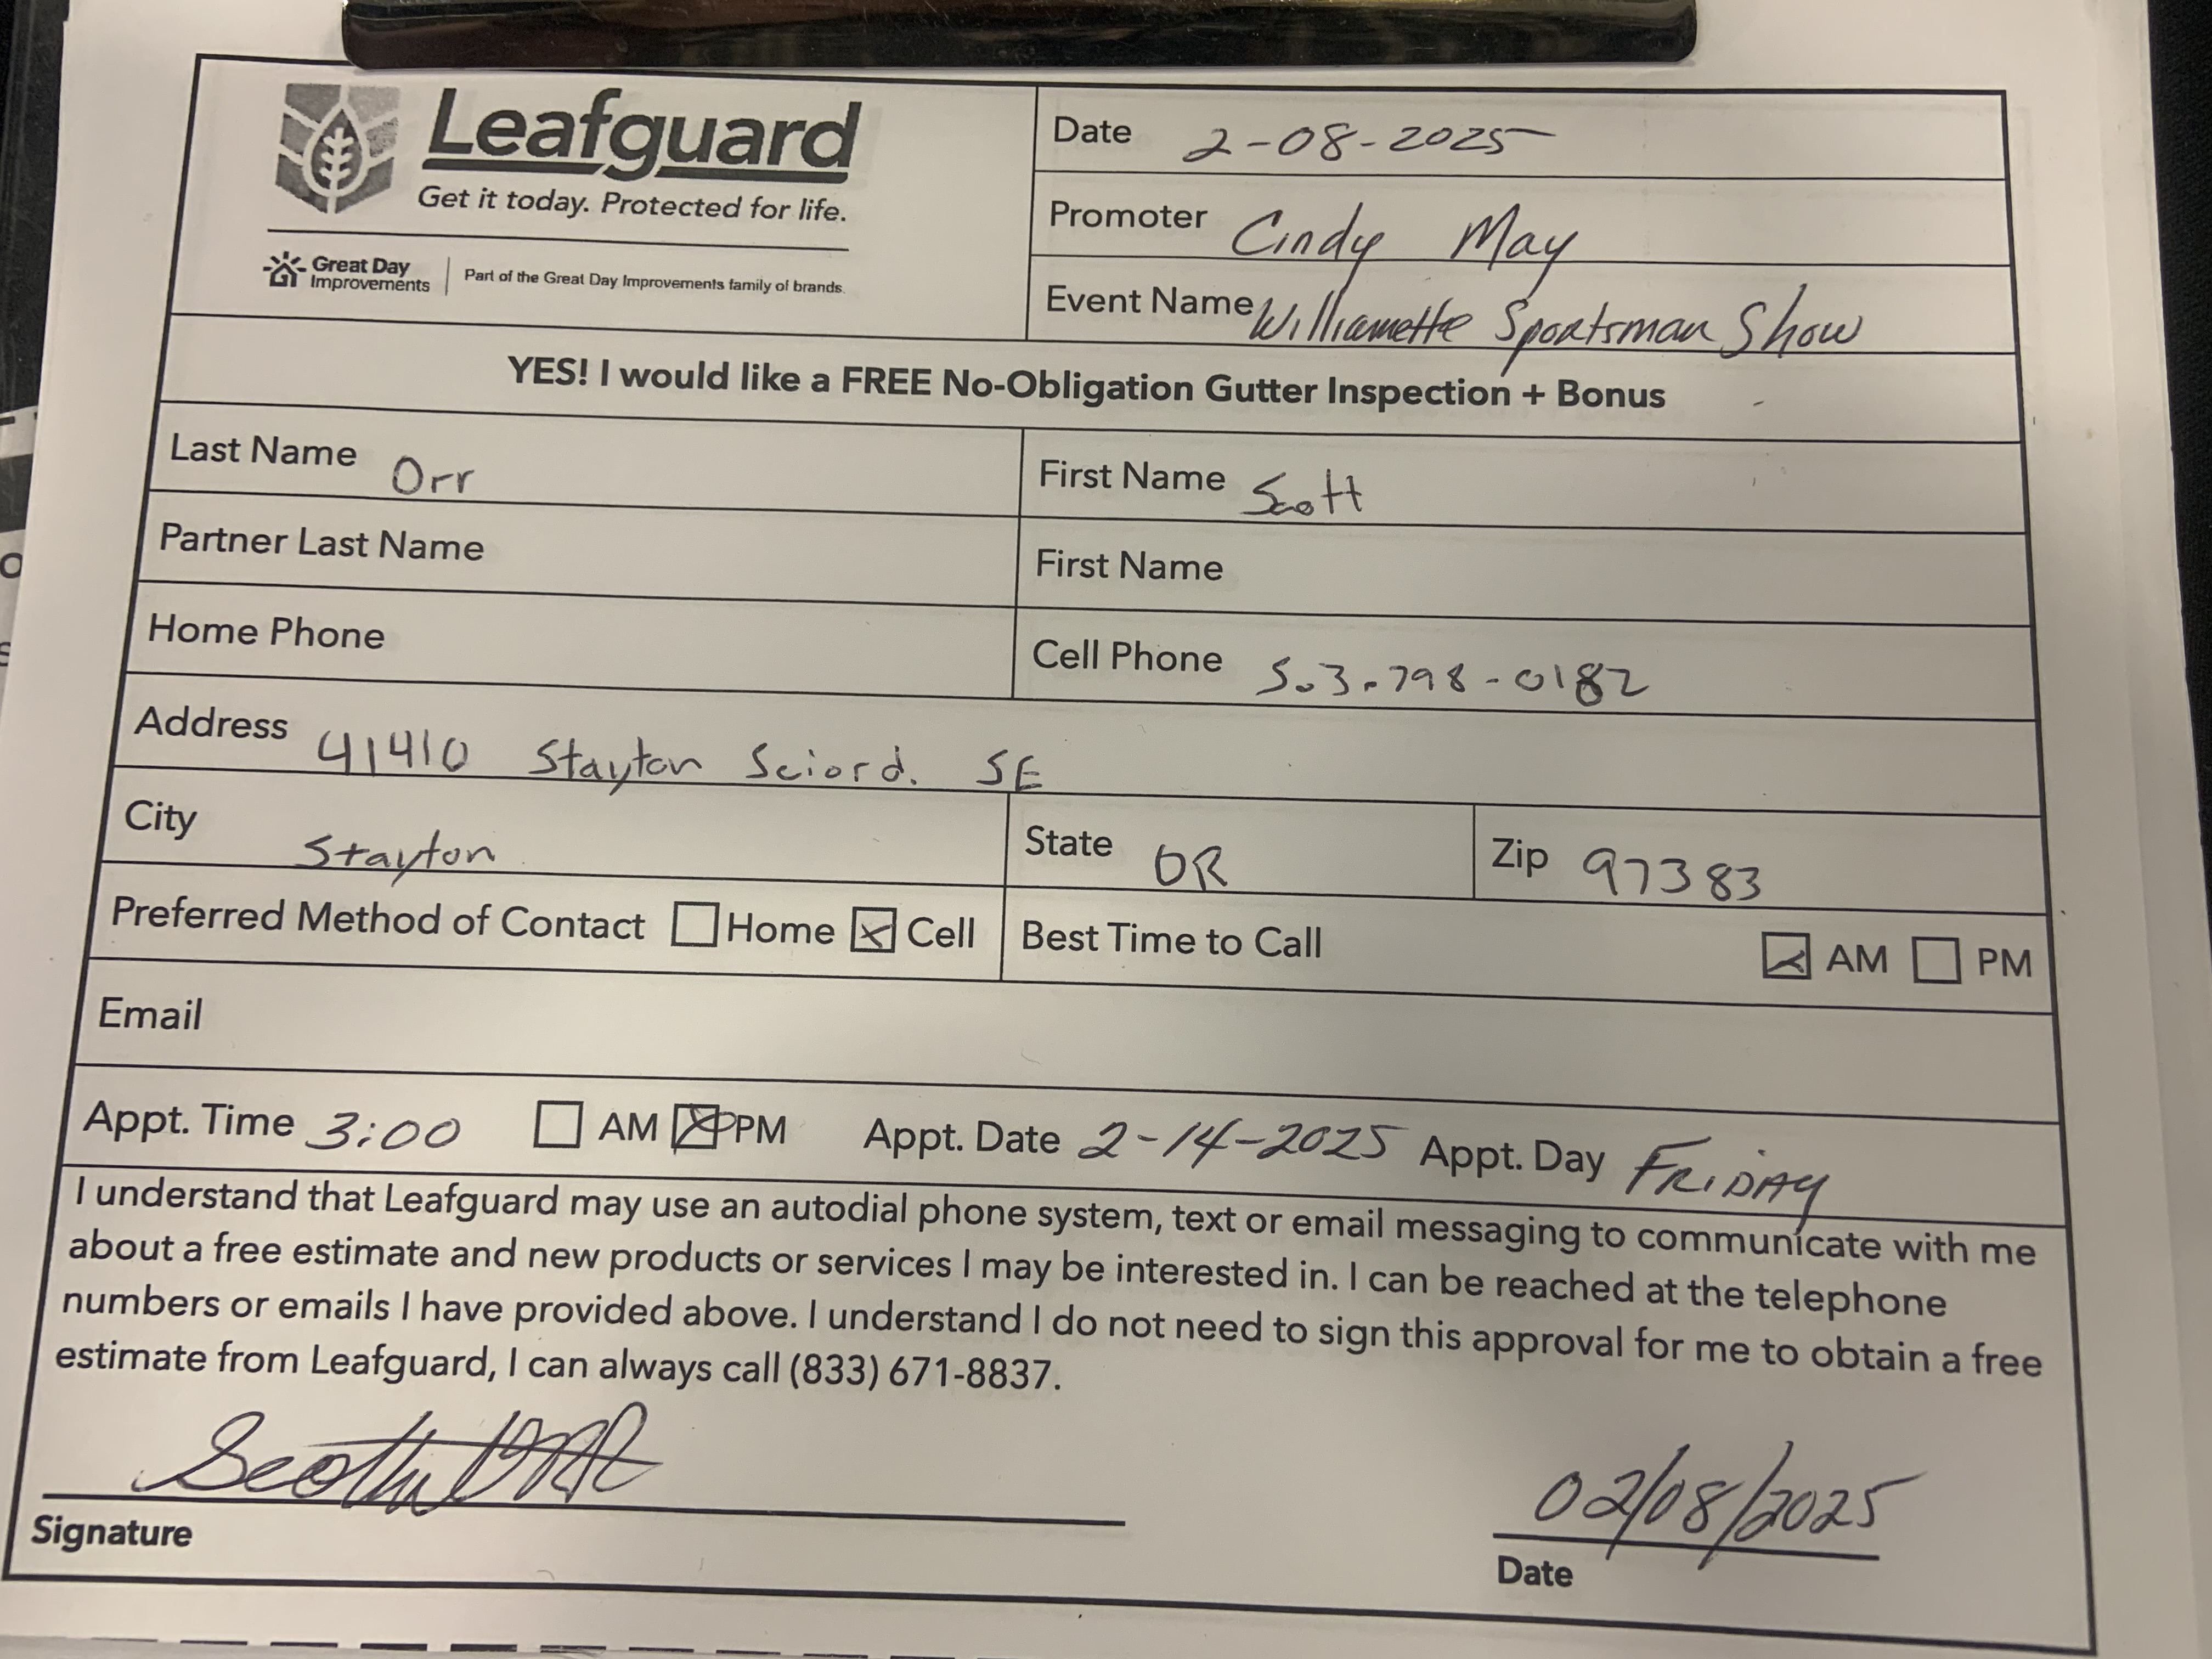 Leafguard
Get it today. Protected for life.
Great Day Improvements | Part of the Great Day Improvements family of brands.
Date 2-08-2025
Promoter Cindy May
Event Name Williamette Sportsman Show
YES! I would like a FREE No-Obligation Gutter Inspection + Bonus
Last Name Orr First Name Scott
Partner Last Name First Name
Home Phone Cell Phone 503-798-0182
Address 41410 Stayton Sciord. SE
City Stayton State OR Zip 97383
Preferred Method of Contact ☐ Home ☒ Cell Best Time to Call ☒ AM ☐ PM
Email
Appt. Time 3:00 ☐ AM ☒ PM Appt. Date 2-14-2025 Appt. Day Friday
I understand that Leafguard may use an autodial phone system, text or email messaging to communicate with me
about a free estimate and new products or services I may be interested in. I can be reached at the telephone
numbers or emails I have provided above. I understand I do not need to sign this approval for me to obtain a free
estimate from Leafguard, I can always call (833) 671-8837.
02/08/2025
Signature Date